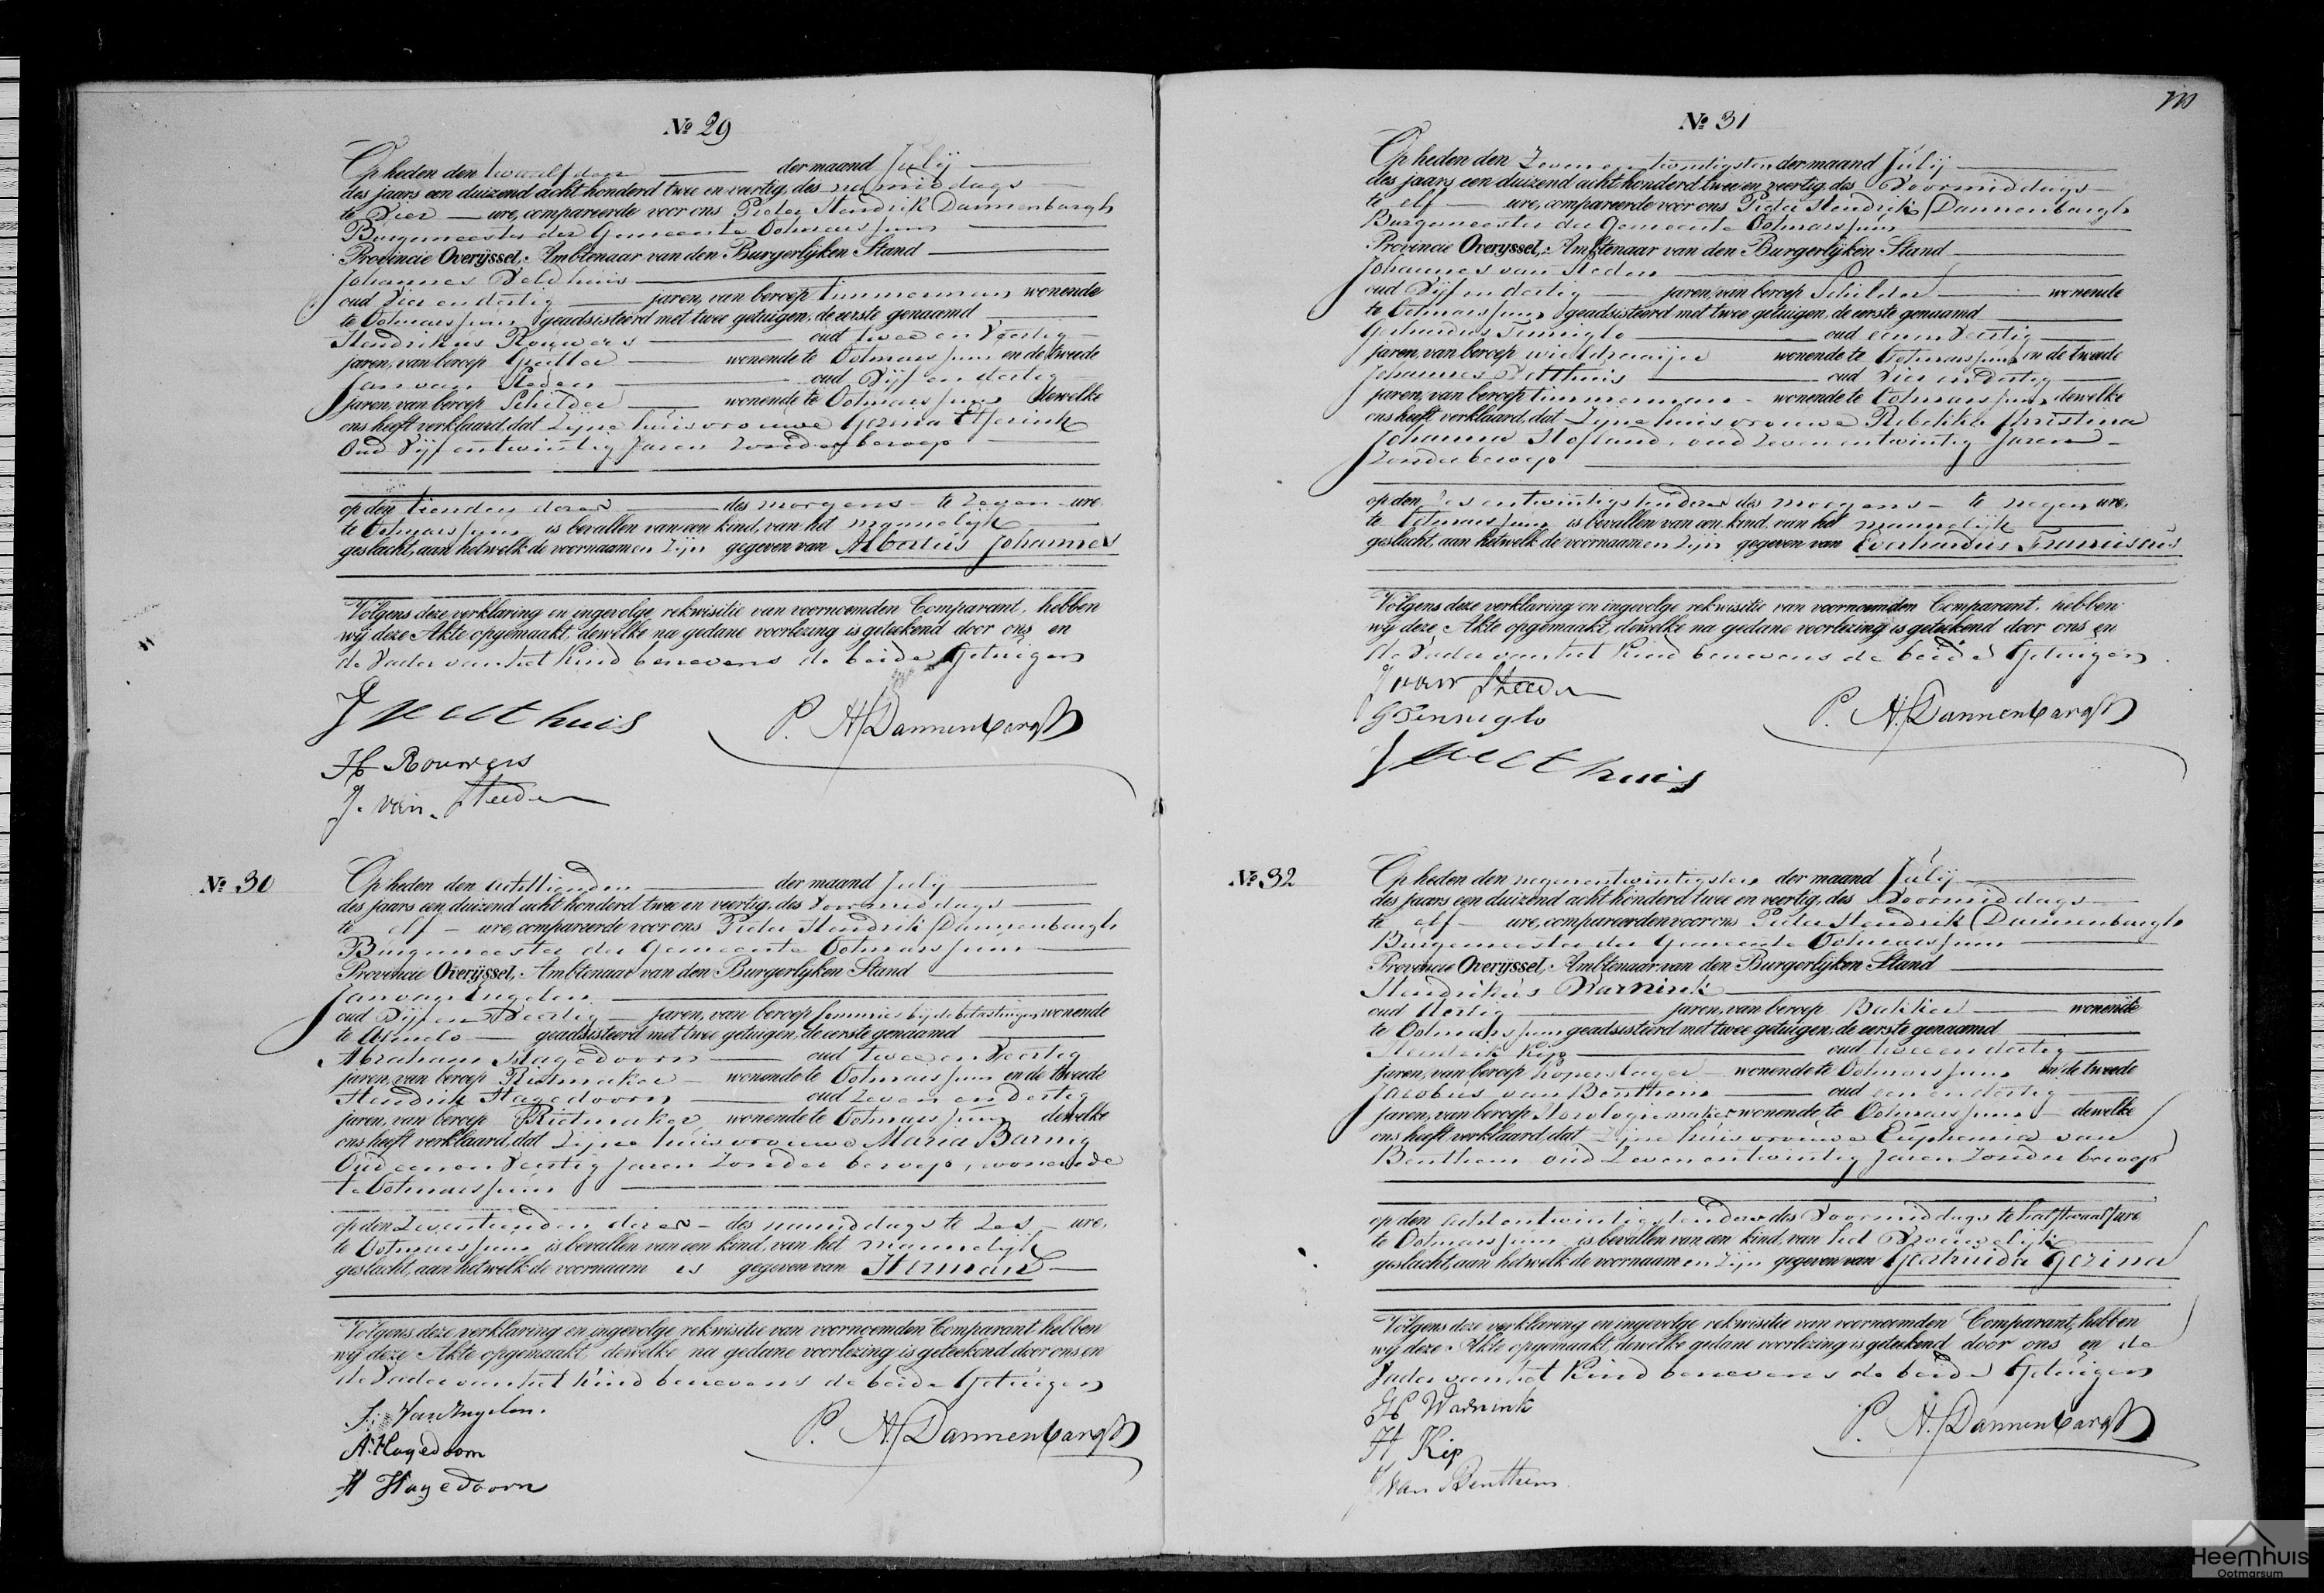 Nº 29
Op heden den twaalfden der maand Julij
des jaars een duizend acht honderd twee en veertig, des namiddags
te Vier ure, compareerde voor ons Pieter Hendrik Dannenbargh
Burgemeester der Gemeente Ootmarssum
Provincie Overijssel, Ambtenaar van den Burgerlijken Stand
Johannes Veldhuis
oud Vier en dertig jaren, van beroep timmerman wonende
te Ootmarssum geadsisteerd met twee getuigen, de eerste genaamd
Hendrikus Rouwers oud twee en Veertig
jaren, van beroep wonende te Ootmarssum en de tweede
Jan van Steden oud Vijf en dertig
jaren, van beroep Schilder wonende te Ootmarssum dewelke
ons heeft verklaard, dat Zijne huisvrouwe Gezina
Oud Vijf entwintig Jaren Zonder beroep
op den tienden dezer des morgens te Zeven ure
te Ootmarssum is bevallen van een kind, van het mannelijk
geslacht, aan hetwelk de voornaamen Zijn gegeven van Albertus Johannes
Volgens deze verklaring en ingevolge rekwisitie van voornoemden Comparant, hebben
wij deze Akte opgemaakt, dewelke na gedane voorlezing is geteekend door ons en
de Vader van het Kind benevens de beide Getuigen
J Velthuis
P. H. Dannenbargh
H Rouwers
J. van Steeden
Nº 30
Op heden den achttienden der maand Julij
des jaars een duizend acht honderd twee en veertig, des Voormiddags
te elf ure, compareerde voor ons Pieter Hendrik Dannenbargh
Burgemeester der Gemeente Ootmarssum
Provincie Overijssel, Ambtenaar van den Burgerlijken Stand
Jan van Ingelen
oud Vijf en Veertig jaren, van beroep Commies bij de belastingen wonende
te Almelo geadsisteerd met twee getuigen, de eerste genaamd
Abraham Hagedoorn oud twee en Veertig
jaren, van beroep Rietmaker wonende te Ootmarssum en de tweede
Hendrik Hagedoorn oud Zeven en Dertig
jaren, van beroep Rietmaker wonende te Ootmarssum dewelke
ons heeft verklaard, dat Zijne huisvrouwe Maria Barnig
Oud eenen Veertig Jaren Zonder beroep, wonende
te Ootmarssum
op den Zeventienden dezer des namiddags te Zes ure,
te Ootmarssum is bevallen van een kind, van het mannelijk
geslacht, aan hetwelk de voornaam is gegeven van Herman
Volgens deze verklaring en ingevolge rekwisitie van voornoemden Comparant hebben
wij deze Akte opgemaakt, dewelke na gedane voorlezing is geteekend door ons en
de Vader van het Kind benevens de beide Getuigen
J. Van Ingelen.
P. H. Dannenbargh
A. Hagedoorn
H Hagedoorn
Nº 31
Op heden den Zeven en twintigsten der maand Julij
des jaars een duizend acht honderd twee en veertig, des Voormiddags
te elf ure, compareerde voor ons Pieter Hendrik Dannenbargh
Burgemeester der Gemeente Ootmarssum
Provincie Overijssel, Ambtenaar van den Burgerlijken Stand
Johannes van Steden
oud Vijf en dertig jaren, van beroep Schilder wonende
te Ootmarssum geadsisteerd met twee getuigen, de eerste genaamd
Gerhardus Tenniglo oud eenen Veertig
jaren, van beroep wieldraaijer wonende te Ootmarssum en de tweede
Johannes Velthuis oud Vier en Dertig
jaren, van beroep timmerman wonende te Ootmarssum dewelke
ons heeft verklaard, dat Zijne huisvrouwe Rebekka Christina
Johanna Hofland, oud Zeven entwintig Jaren
Zonder beroep
op den Zes entwintigsten dezer des morgens te negen ure,
te Ootmarssum is bevallen van een kind, van het mannelijk
geslacht, aan hetwelk de voornaamen Zijn gegeven van Everhardus Franciscus
Volgens deze verklaring en ingevolge rekwisitie van voornoemden Comparant, hebben
wij deze Akte opgemaakt, dewelke na gedane voorlezing is geteekend door ons en
de Vader van het Kind benevens de beide Getuigen
J van Steeden
P. H. Dannenbargh
G Tenniglo
J Velthuis
Nº 32
Op heden den negenentwintigsten der maand Julij
des jaars een duizend acht honderd twee en veertig, des Voormiddags
te elf ure, compareerden voor ons Pieter Hendrik Dannenbargh
Burgemeester der Gemeente Ootmarssum
Provincie Overijssel, Ambtenaar van den Burgerlijken Stand
Hendrikus Warnink
oud dertig jaren, van beroep Bakker wonende
te Ootmarssum geadsisteerd met twee getuigen, de eerste genaamd
Hendrik Kip oud twee en dertig
jaren, van beroep koperslager wonende te Ootmarssum en de tweede
Jacobus van Benthem oud een en dertig
jaren, van beroep Horologiemaker wonende te Ootmarssum dewelke
ons heeft verklaard, dat Zijne huisvrouwe Euphemia van
Benthem oud Zeven entwintig Jaren Zonder beroep
op den acht entwintigsten dezer des Voormiddags te half twaalf ure
te Ootmarssum is bevallen van een kind, van het Vrouwelijk
geslacht, aan hetwelk de voornaamen Zijn gegeven van Geertruida Gezina
Volgens deze verklaring en ingevolge rekwisitie van voornoemden Comparant, hebben
wij deze Akte opgemaakt, dewelke gedane voorlezing is geteekend door ons en de
Vader van het Kind benevens de beide Getuigen
H Warnink
P. H. Dannenbargh
H Kip
J van Benthem
Heemhuis
Ootmarsum